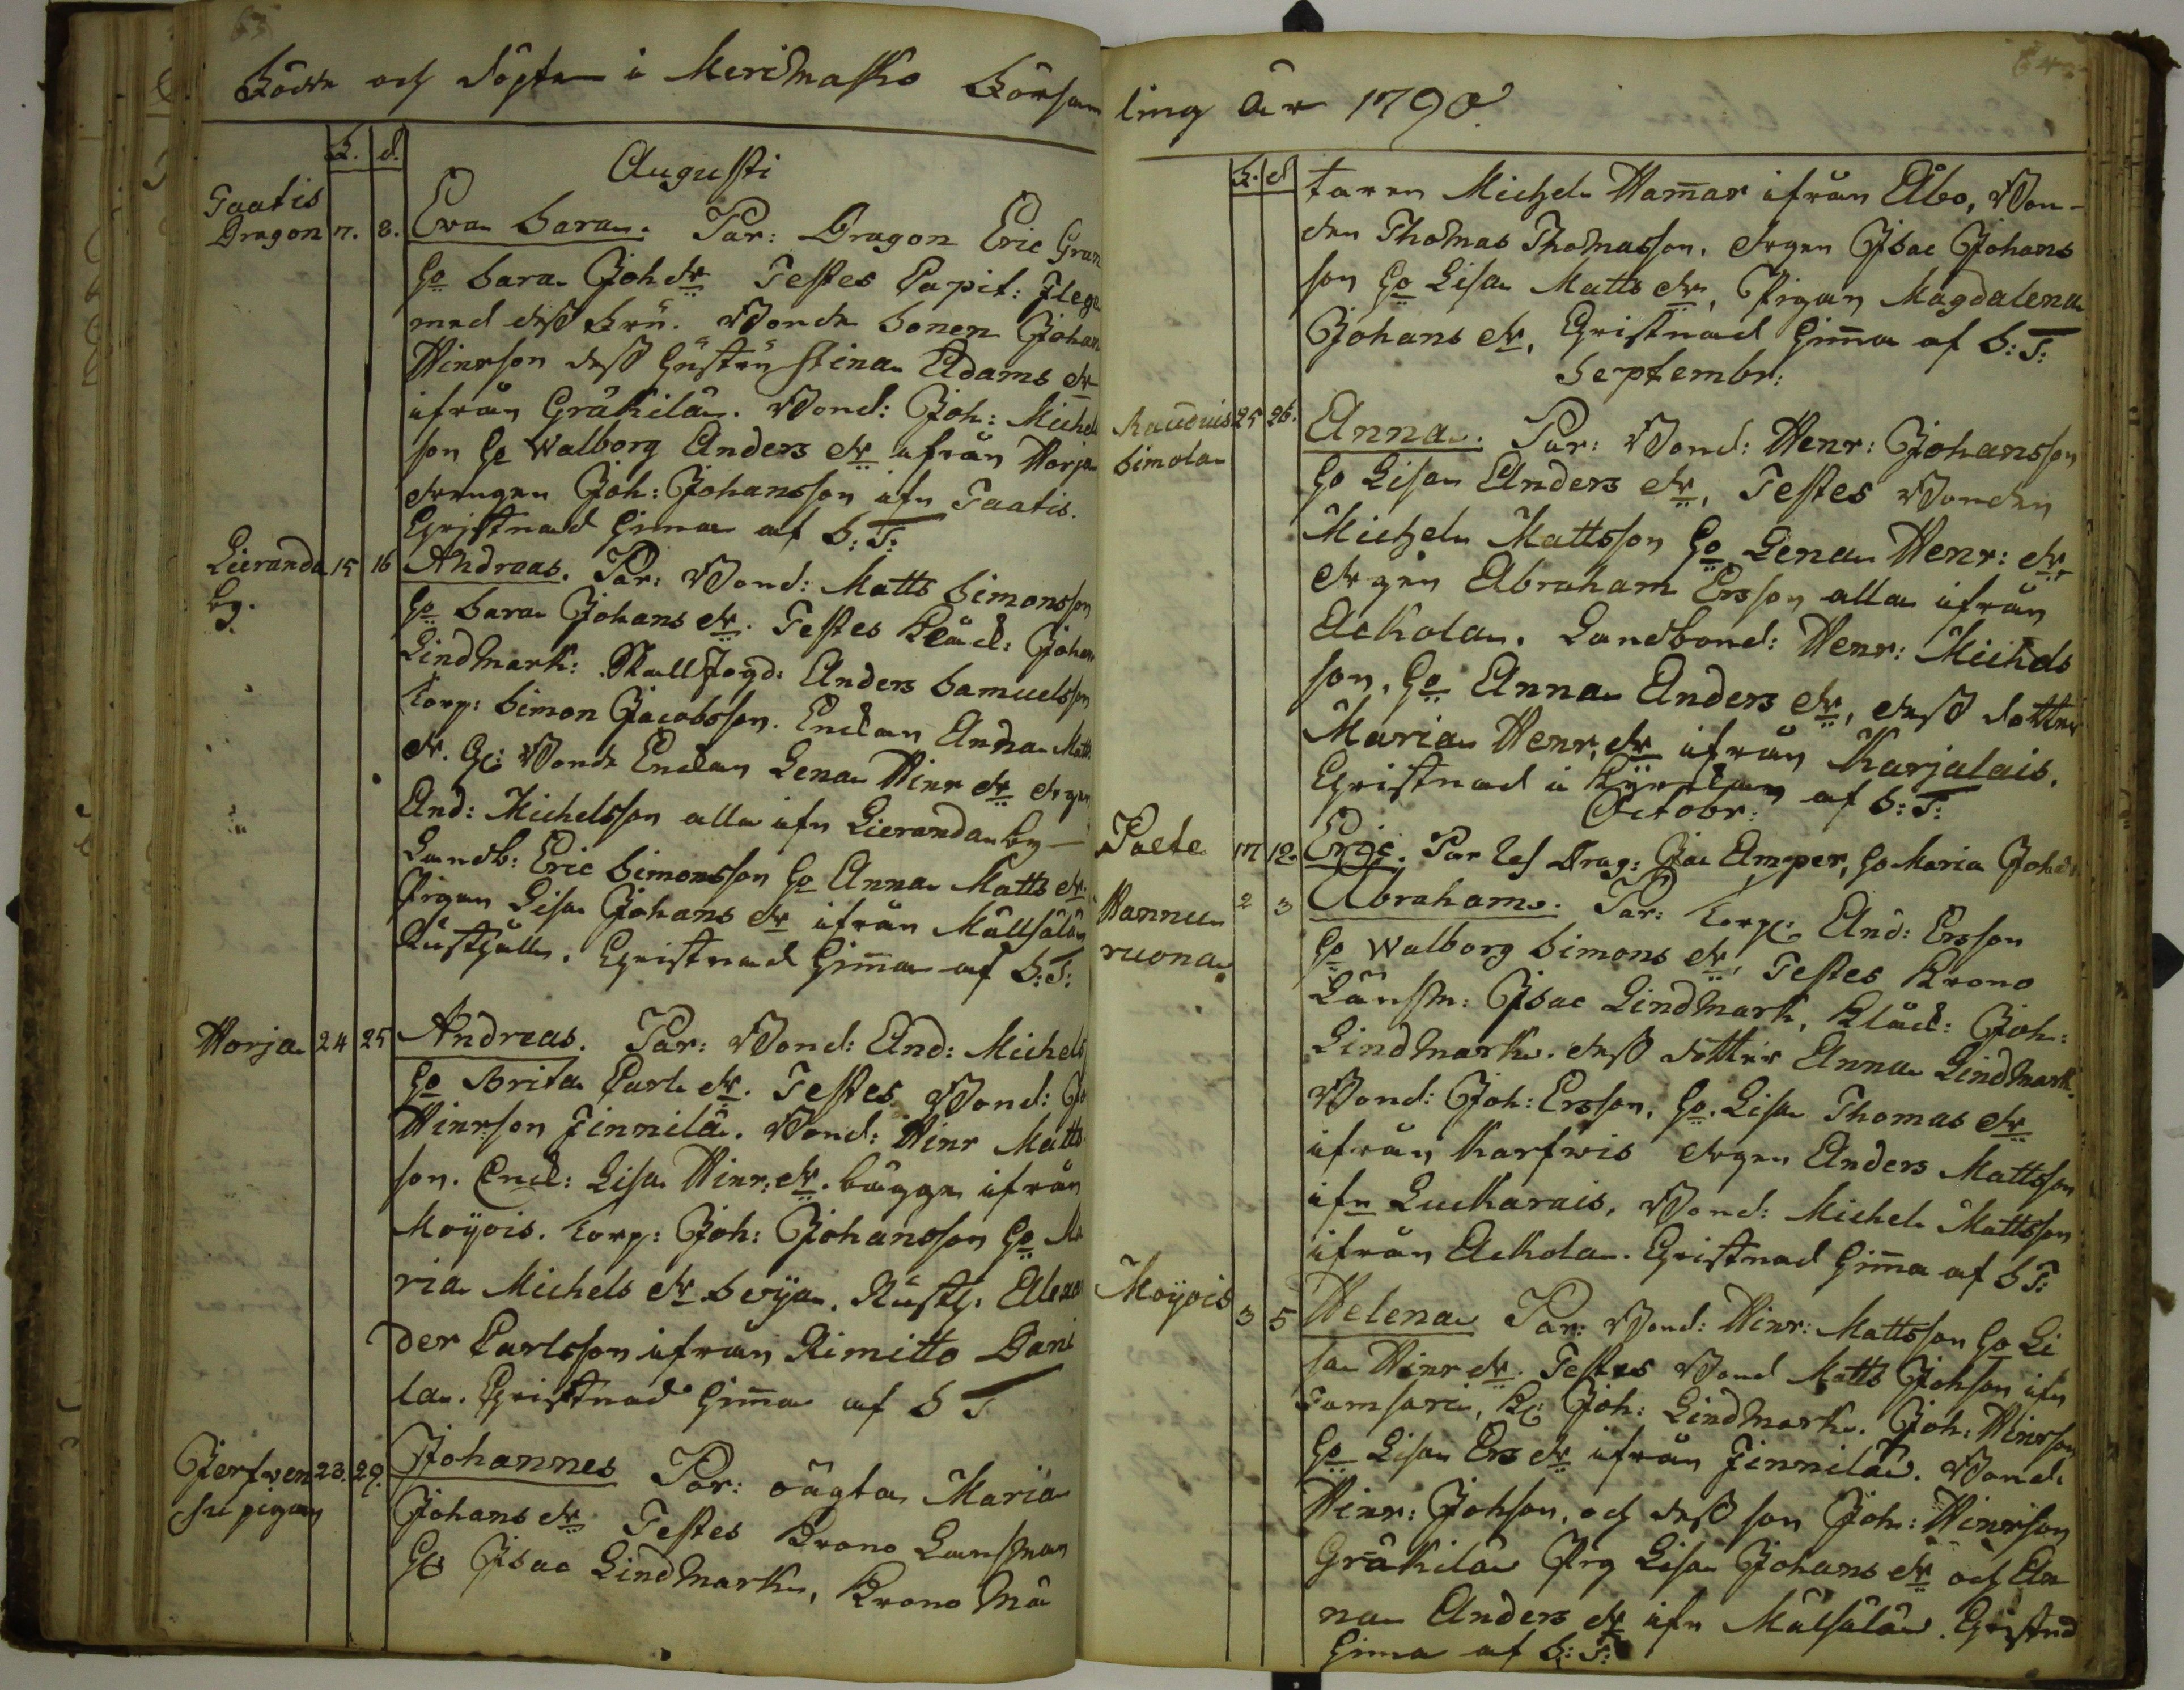 63
Födde och döpte i Merimasko Försam
F. d.
Augusti
Taatis
Dragon 7. 8. Eva Sara. Par: Dragon Eric Gran
ho Sara Joh dr Testes Capit: Flege
med dess fru. Bonde Sonen Johan
Hinrson dess hustru Stina Adams dr
ifrån Gråkilä. Bond: Joh: Michels
son ho Walborg Anders dr ifrån Horja
drengen Joh: Johansson ifn Taatis.
Christnad hema af S: T:
Lieranda by. 15 16 Andreas. Par: Bond: Matts Simonsson
ho Sara Johans dr. Testes Klåck: Johan
Lindmark: Skallfogd: Anders Samuelsson
Torp: Simon Jacobsson. Enckan Anna Matts
dr. Bonde Enckan Lena Hinr dr drgen
And: Michelsson alla ifn Lieranda by
Landb: Eric Simonsson ho Anna Matts dr.
Pigan Lisa Johans dr ifrån Mällsälä
Rusthåll. Christnad hema af S: T:
Horja 24 25 Andreas. Par: Bond: And: Michels
ho Brita Carls dr. Testes Bond: Jo
Hinrson Finnilä. Bond: Hinr Matts
son. Enck: Lisa Hinr: dr. bägge ifrån
Moÿois. Torp: Joh: Johansson ho Ma
ria Michels dr Rusth: Alexan
der Carlsson ifrån Rimitto Bani
la. Christnad hema af S T
Jerfwen
su pigan 23. 29. Johannes Par: oägta Maria
Johans dr Testes Krono Lansman
H: Isac Lindmark, Krono Mä
64
ling år 1790
F. d
taren Michel Hammar ifrån Åbo, Bon-
den Thomas Thomasson, drgen Isac Johans
son ho Lisa Matts dr, Pigan Magdalena
Johans dr, Christnad hema af S: T:
Septembr:
Rauduis
Simola 25 26. Anna. Par: Bond: Henr: Johansson
ho Lisa Anders dr, Testes Bonden
Michel Mattsson ho Lena Henr: dr
drgen Abraham Ersson alla ifrån
Ackola. Landbond: Henr: Michels
son, ho Anna Anders dr, dess dotter
Maria Henr dr ifrån Karjalais.
Christnad i Kyrckan af S: T:
Octobr:
Paete 17 12. Eric. Par Drag: Jac Amper, ho Maria Joh dr
Hannu
ruona 2 3 Abraham. Par: Torp: And: Ersson
ho Walborg Simons dr, Testes Krono
Länsm: Isac Lindmark, Klåck: Joh:
Lindmark. dess dotter Anna Lindmark.
Bond: Joh: Ersson, ho Lisa Thomas dr
ifrån Karfwis drgen Anders Mattsson
ifn Luckarais, Bond: Michel Mattsson
ifrån Ackola. Christnad hema af S T:
Moÿois 3 5 Helena Par: Bond: Hinr: Mattsson ho Li
sa Hinr dr. Testes Bond Matts Johson ifn
Tamsari, Kl: Joh: Lindmark. Joh: Hinrson
ho Lisa Ers dr ifrån Finnilä. Bond:
Hinr: Johson, och dess son Joh: Hinrson
Gråkilä Pig Lisa Johans dr och An
na Anders dr ifn Mälsälä. Christnd
hema af S: T: